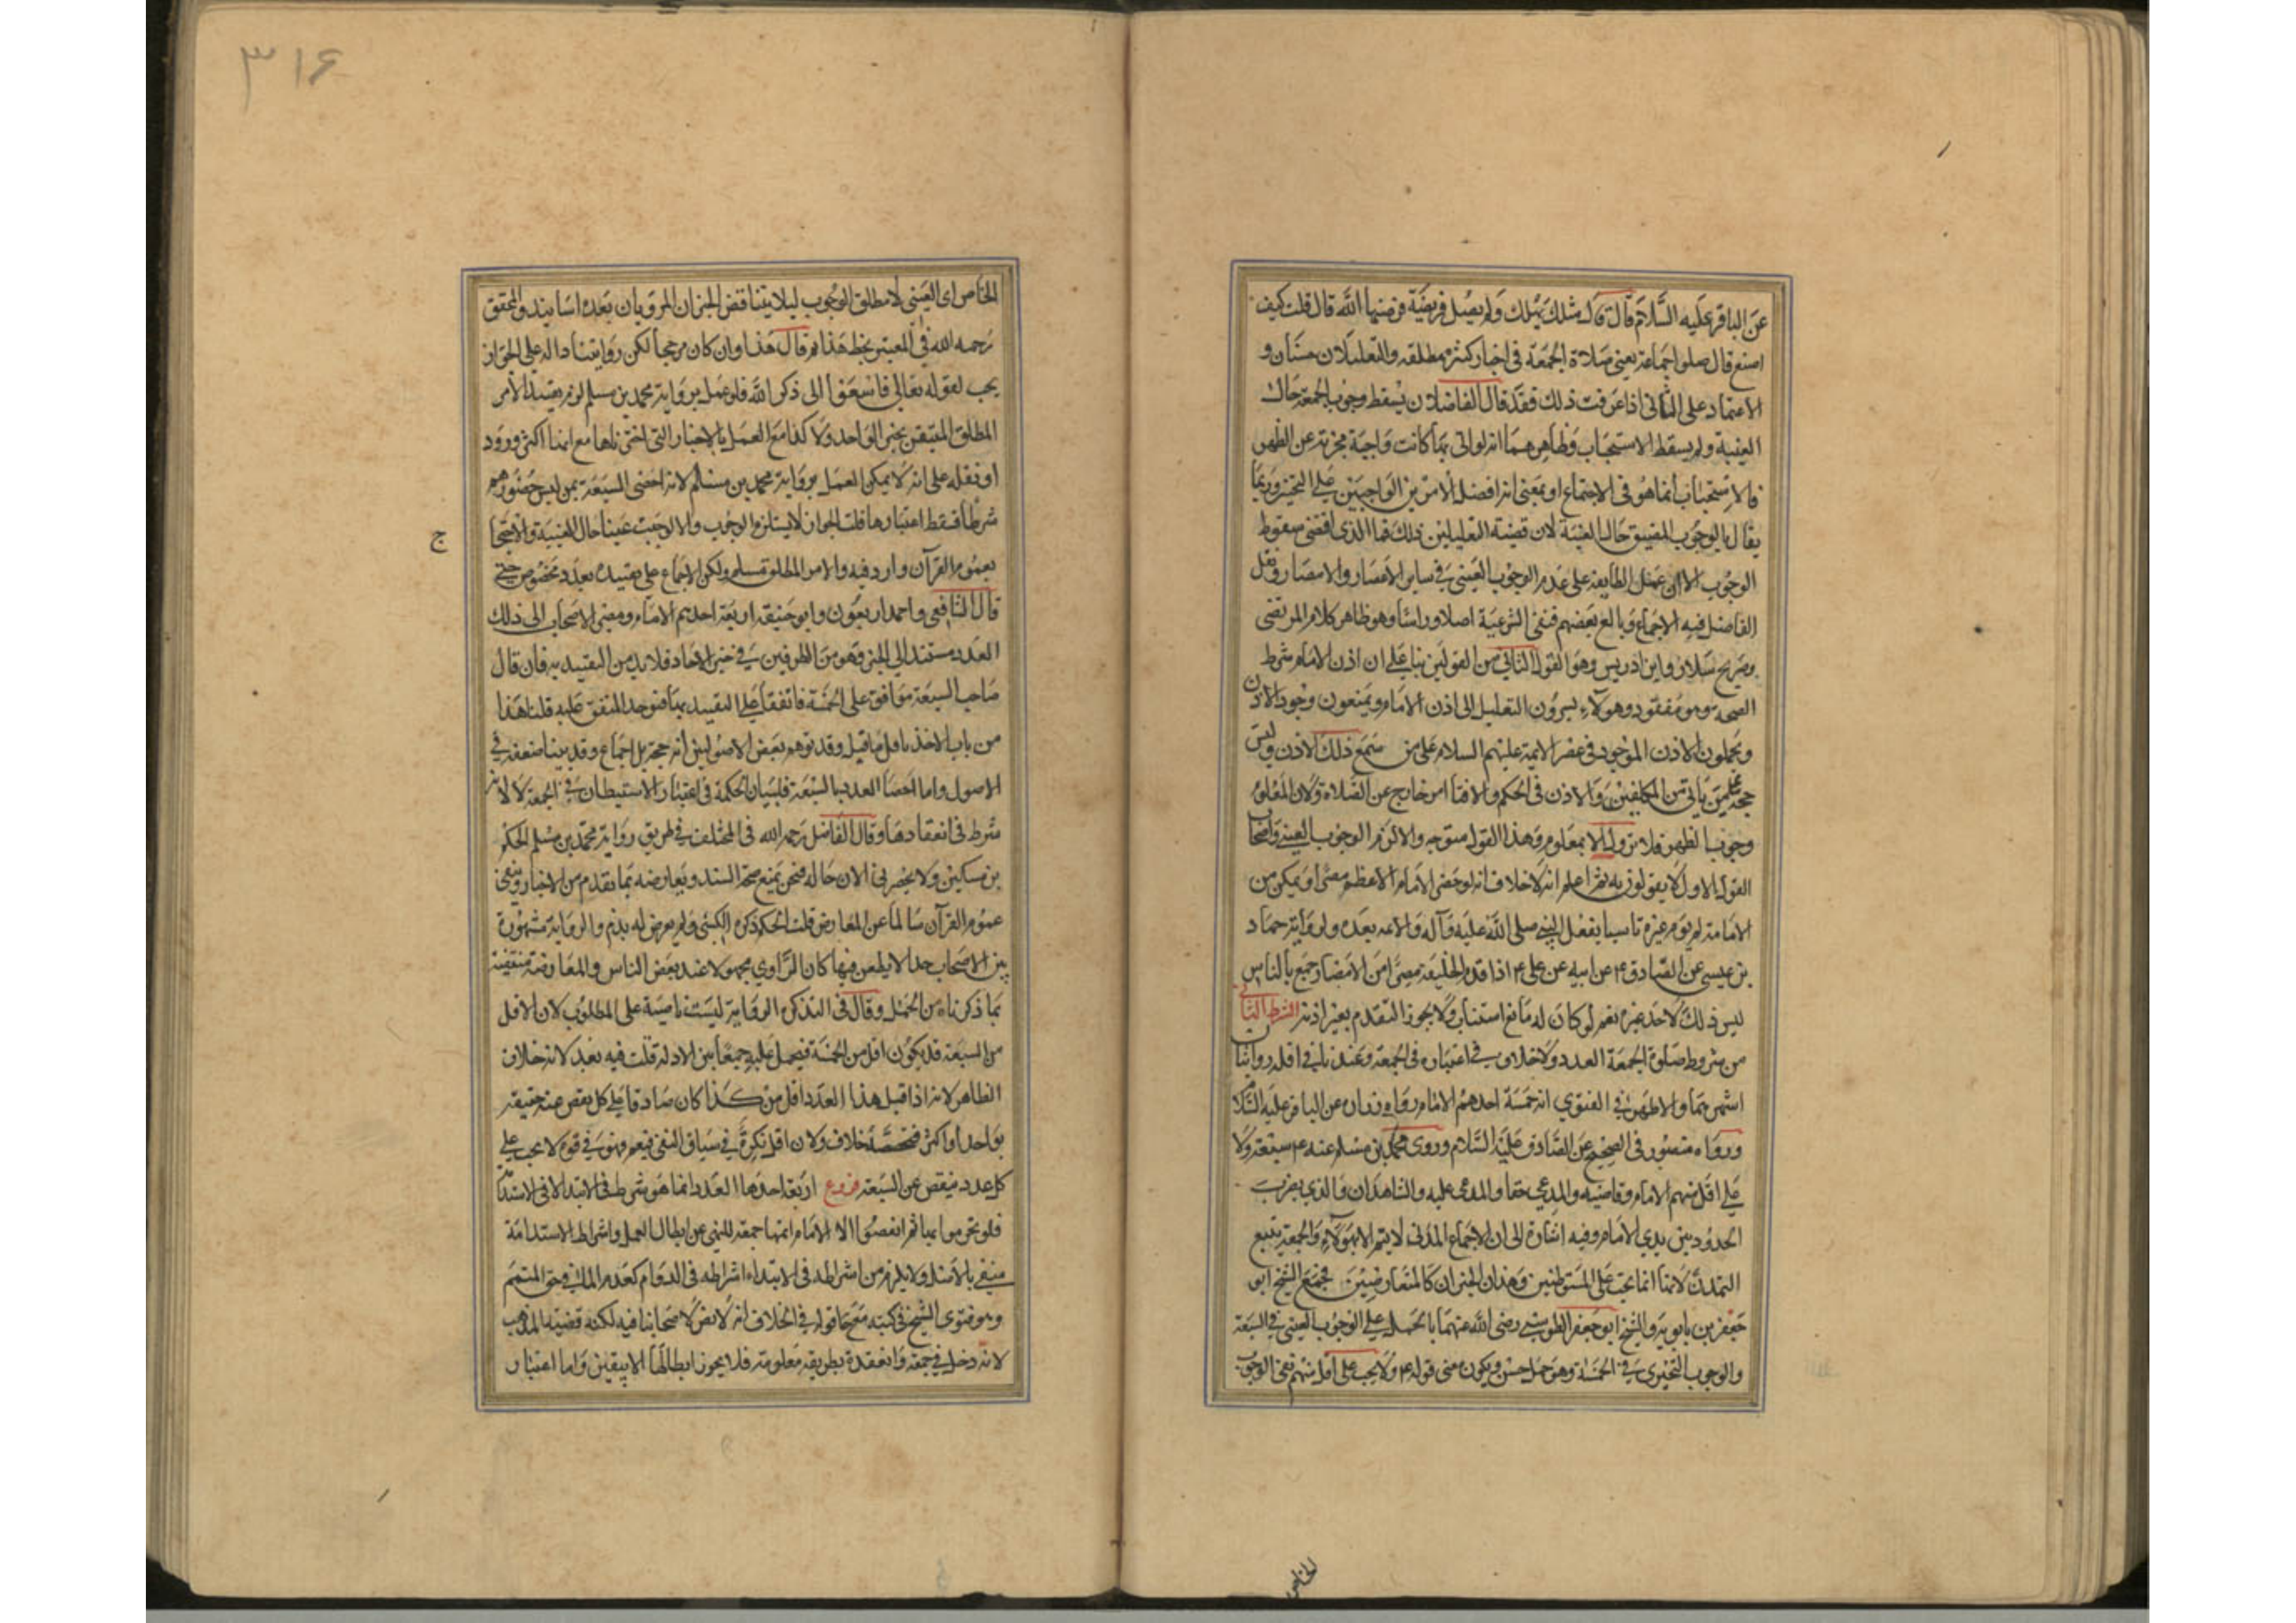 عن الباقر عليه السلام قال قال مثلك يهلك ولم يصل فريضة فرضها الله قال قلت كيف
اصنع قال صلوا جماعة يعني صلاة الجمعة في اخبار كثيرة مطلقه والتعليلان حسنان و
الاعتماد على الثاني اذا عرفت ذلك فقد قال الفاضلان يسقط وجوب الجمعة حال
الغيبة ولم يسقط الاستحباب وظاهرهما انه لو اتى بها كانت واجبة مجزية عن الظهر
فالاستحباب انما هو في الاجتماع او بمعنى انه افضل الامرين الواجبين على التخيير وربما
يقال بالوجوب المضيق حال الغيبة لان قضية التعليلين ذلك فما الذي اقتضى سقوط
الوجوب الا ان عمل الطايفة على عدم الوجوب العيني في ساير الاعصار والامصار ونقل
الفاضل فيه الاجماع وبالغ بعضهم فنفى الشرعية اصلا وراسا وهو ظاهر كلام المرتضى
وصريح سلار وابن ادريس وهو القول الثاني من القولين بناء على ان اذن الامام شرط
الصحة وهو مفقود وهولاء يسندون التعليل الى اذن الامام ويمنعون وجود الاذن
ويحملون الاذن الموجود في عصر الايمة عليهم السلام على من سمع ذلك الاذن وليس
حجة على من ياتي من المكلفين والاذن في الحكم والافتا امر خارج عن الصلاة ولان المعلوم
وجوب الظهر فلا تزول الا بمعلوم وهذا القول متوجه والا لزم الوجوب العيني واصحاب
القول الاول لا يقولون به ثم اعلم انه لا خلاف انه لو حضر الامام الاعظم مصرا وتمكن من
الامامة لم يوم غيره تاسيا بفعل النبي صلى الله عليه وآله والائمة بعده ولرواية حماد
بن عيسى عن الصادق ع عن ابيه عن علي ع اذا قدم الخليفة مصرا من الامصار جمع بالناس
ليس ذلك لاحد غيره نعم لو كان له مانع استناب ولا يجوز التقدم بغير اذنه الشرط الثاني
من شروط صلوة الجمعة العدد ولا خلاف في اعتباره في الجمعة وعندنا في اقله روايتان
اشهرهما والاظهر في الفتوي انه خمسة احدهم الامام رواه زراره عن الباقر عليه السلام
ورواه منصور في الصحيح عن الصادق عليه السلام وروى محمد بن مسلم عنه ع سبعة ولا
على اقل منهم الامام وقاضيه والمدعي حقا والمدعى عليه والشاهدان والذي يضرب
الحدود بين يدي الامام وفيه اشارة الى ان الاجتماع المدني لا يتم الا بهولاء والجمعة يتبع
التمدن لانها انما يجب على المستوطنين وهذان الخبران كالمتعارضين فجمع الشيخ ابو
جعفر بن بابويه والشيخ ابو جعفر الطوسي رضي الله عنهما بالحمل على الوجوب العيني في السبعة
والوجوب التخيرى في الخمسة وهو حمل حسن ويكون معنى قوله ع ولا يجب على اقل منهم نفي الوجوب
الخاص
٣١۶
الخاص اى العيني لا مطلق الوجوب ليلا يتناقض الخبران المرويان بعدة اسانيد والمحقق
رحمه الله في المعتبر لحظ هذا ثم قال هذا وان كان مرجحا لكن روايتنا دالة على الجواز
يجب لقوله تعالى فاسعوا الى ذكر الله فلو عمل برواية محمد بن مسلم لزم تقييد الأمر
المطلق المتيقن بخبر الواحد ولا كذا مع العمل بالاخبار التي اخترناها مع انها اكثر ورود
او نقله على انه لا يمكن العمل برواية محمد بن مسلم لانه احصى السبعة بمن ليس حضورهم
شرطا فسقط اعتبارها قلت الجواز لا يستلزم الوجوب والا لوجبت عينا حال الغيبة والاحتجاج
ج
بعموم القرآن وارد فيه والامر المطلق مسلم ولكن الاجماع على تقييده بعدد مخصوص حتى
قال الشافعي واحمد اربعون وابو حنيفة اربعة احدهم الامام ومصير الاصحاب الى ذلك
العدد مستند الى الخبر وهو من الطرفين في خبر الاحاد فلا بد من التقييد به فان قال
صاحب السبعة موافق على الخمسة فاتفقا على التقييد بها فنوجد المتفق عليه قلنا هذا
من باب الاخذ باقل ما قيل وقد توهم بعض الاصوليين انه حجة بل اجماع وقد بينا ضعفه في
الاصول واما احصا العدد بالسبعة فلبيان الحكمة في اعتبار الاستيطان في الجمعة لا لانه
شرط في انعقادها وقال الفاضل رحمه الله في المختلف في طريق رواية محمد بن مسلم الحكم
بن مسكين ولا يحضرني الان حاله فنحن نمنع صحة السند ويعارضه بما تقدم من الاخبار وتبقى
عموم القرآن سالما عن المعارض قلت الحكم ذكره الكشي ولم يعرض له بذم والرواية مشهورة
بين الاصحاب جدا لا يطعن فيها كان الراوي مجهولا عند بعض الناس والمعارضة منتفية
بما ذكرناه من الحمل وقال في التذكرة الرواية ليست ناصية على المطلوب لان الاقل
من السبعة قد يكون اقل من الخمسة فيحمل عليه جمعا بين الادلة قلت فيه بعد لانه خلاف
الظاهر لانه اذا قيل هذا العدد اقل من كذا كان صادقا على كل نقص عنه حقيقة
بواحد او اكثر فتخصصه خلاف ولان اقل نكرة في سياق النفي فيعم فهو في قوه لا يجب على
كل عدد ينقص عن السبعة فروع اربعة احدها العدد انما هو شرط في الابتداء لا في الاستدامة
فلو تحرموا بها ثم انفضوا الا الامام اتمها جمعة للنهي عن ابطال العمل واشتراط الاستدامة
منفي بالاصل ولا يلزم من اشتراطه في الابتداء اشتراطه في الدوام كعدم الماء في حق المتيمم
وهو فتوى الشيخ في كتبه مع قوله في الخلاف انه لا نص لاصحابنا فيه لكنه قضية المذهب
لانه دخل في جمعة وانعقدة بطريقة معلومة فلا يجوز ابطالها الا بيقين واما اعتبار